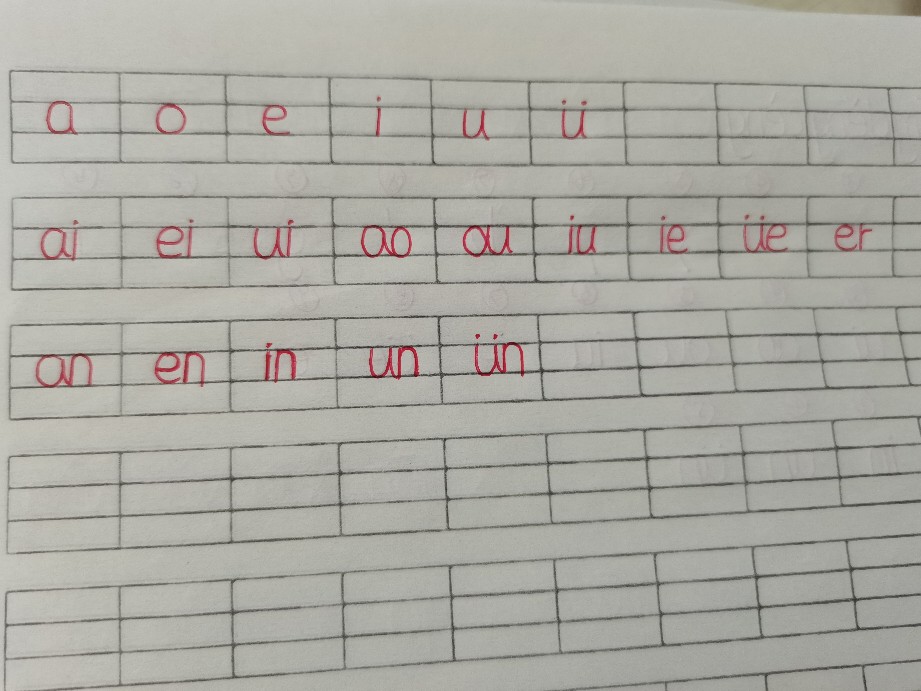 a o e i u ü
ai ei ui ao ou iu ie üe er
an en in un ün